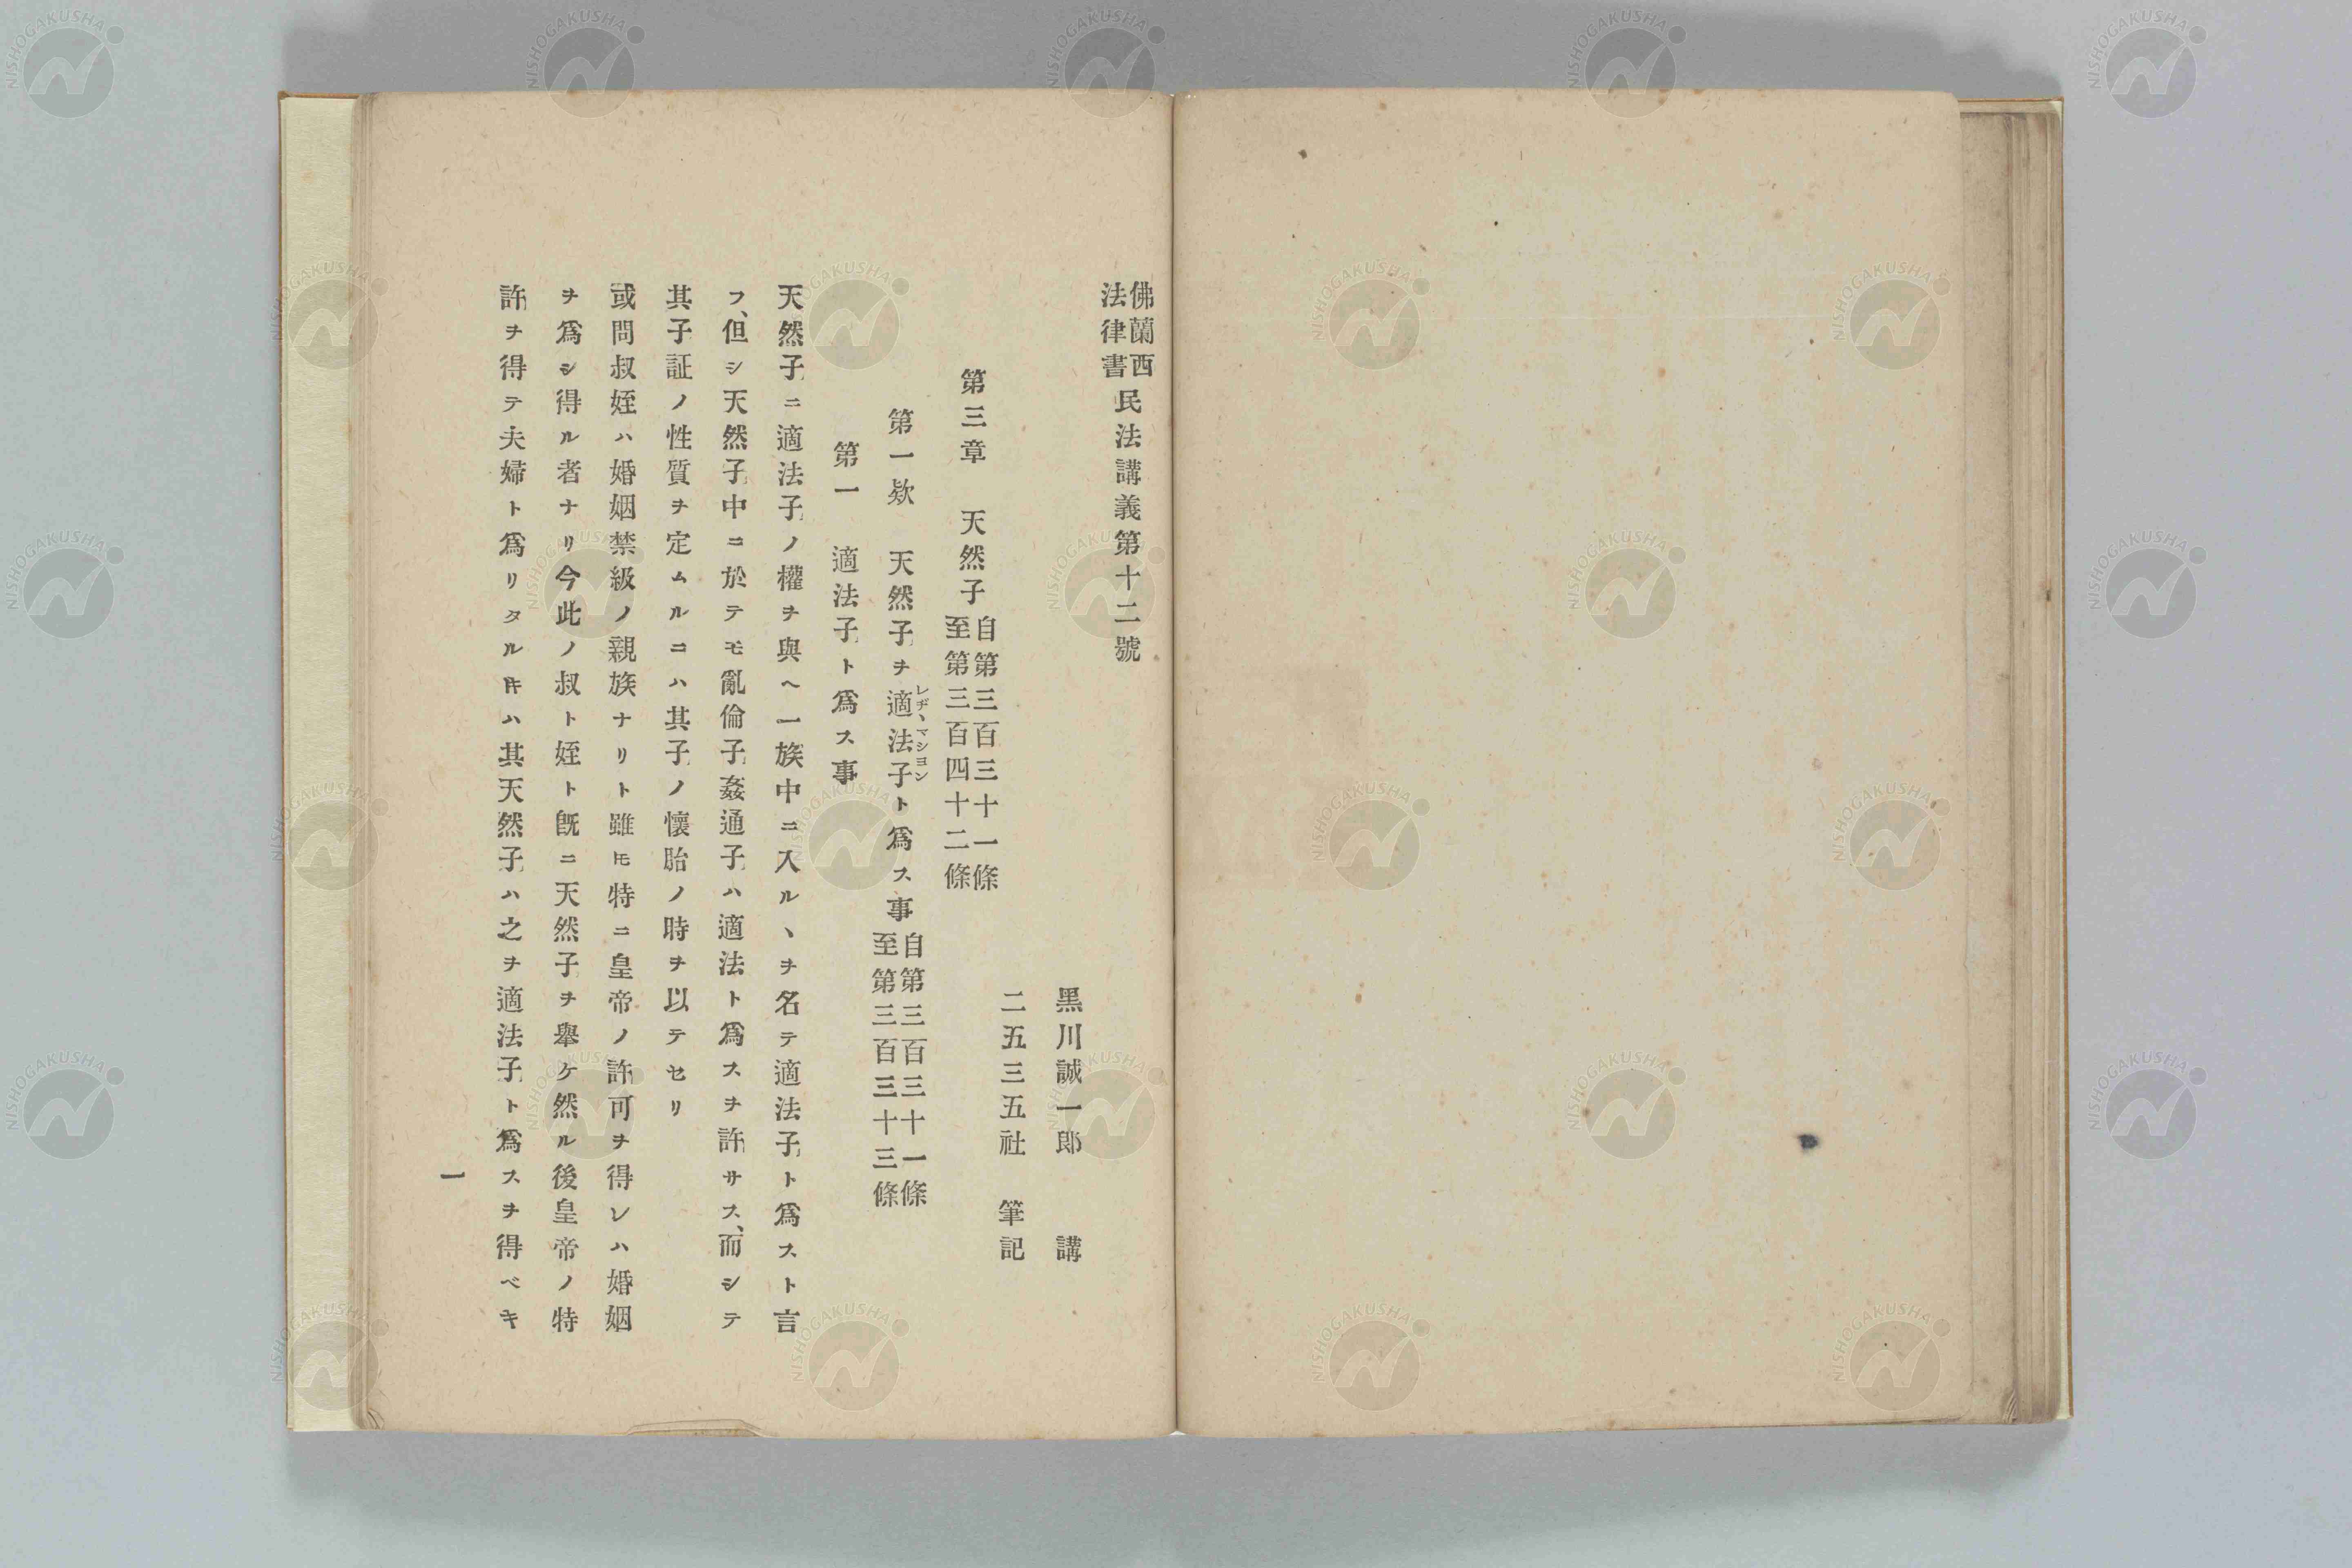 佛蘭西法律書民法講義第十二號
黑川誠一郎 講
二五三五社 筆記
第三章 天然子自第三百三十一條至第三百四十二條
第一欵 天然子ヲ適法子ト爲ス事自第三百三十一條至第三百三十三條
レヂヽマシヨン
第一 適法子ト爲ス事
天然子ニ適法子ノ權ヲ與ヘ一族中ニ入ルヽヲ名テ適法子ト爲スト言
フ、但シ天然子中ニ於テモ亂倫子姦通子ハ適法ト爲スヲ許サス、而シテ
其子証ノ性質ヲ定ムルニハ其子ノ懷胎ノ時ヲ以テセリ
或問叔姪ハ婚姻禁級ノ親族ナリト雖𪜈特ニ皇帝ノ許可ヲ得レハ婚姻
ヲ爲シ得ル者ナリ今此ノ叔ト姪ト旣ニ天然子ヲ擧ケ然ル後皇帝ノ特
許ヲ得テ夫婦ト爲リタル𪜈ハ其天然子ハ之ヲ適法子ト爲スヲ得ベキ
一
NISHOGAKUSHA